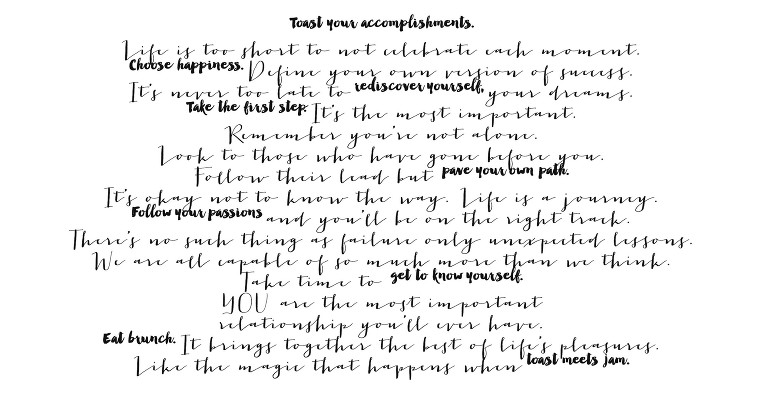 Toast your accomplishments.
Life is too short to not celebrate each moment.
Choose happiness. Define your own version of success.
It's never too late to rediscover yourself, your dreams.
Take the first step. It's the most important.
Remember you're not alone.
Look to those who have gone before you.
Follow their lead but pave your own path.
It's okay not to know the way. Life is a journey.
Follow your passions and you'll be on the right track.
There's no such thing as failure only unexpected lessons.
We are all capable of so much more than we think.
Take time to get to know yourself.
YOU are the most important
relationship you'll ever have.
Eat brunch. It brings together the best of life's pleasures.
Like the magic that happens when toast meets jam.